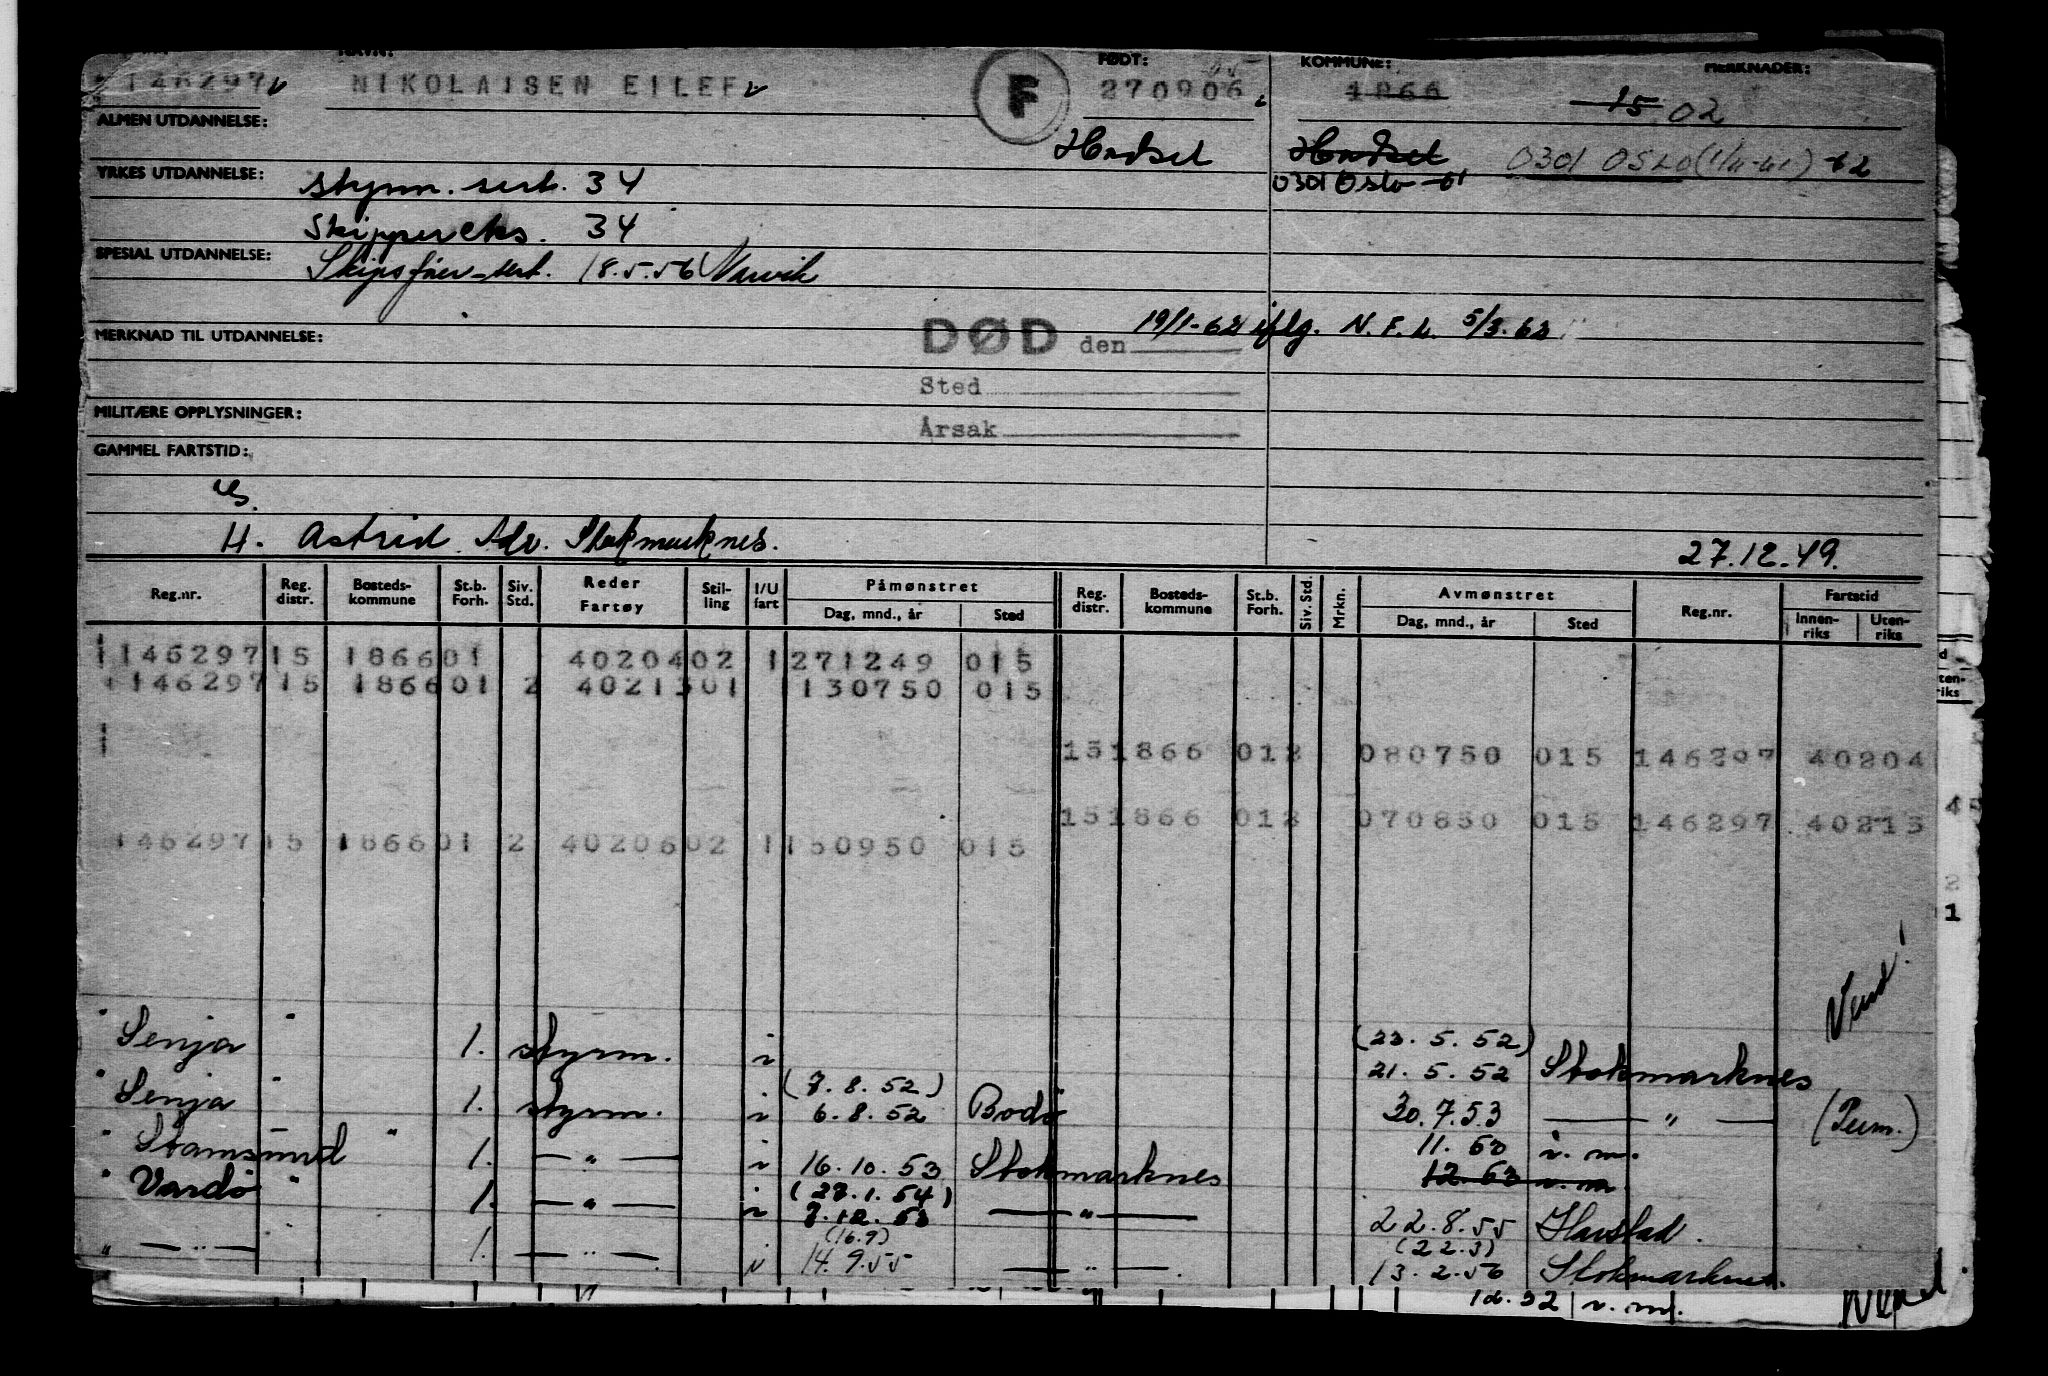 NAVN: FØDT: KOMMUNE: MERKNADER:
146297 NIKOLAISEN EILEF F 270906 1866 15 02
ALMEN UTDANNELSE: Hadsel Hadsel 0301 OSLO (1/11-61) -62
YRKES UTDANNELSE: styrm. sert. 34 0301 Oslo -61
Skippereks. 34
SPESIAL UTDANNELSE: Skipsfører-sert. 18.5.56 Narvik
MERKNAD TIL UTDANNELSE: DØD den 19/1-62 iflg. N.F.L. 5/3.62
Sted
MILITÆRE OPPLYSNINGER:
Årsak
GAMMEL FARTSTID:
H. Astrid Adr. Stokmarknes. 27.12.49.
Reg.nr. Reg. distr. Bosteds-kommune St.b. Forh. Siv. Std. Reder Fartøy Stil-ling I/U fart Påmønstret Dag, mnd., år Sted Reg. distr. Bosteds-kommune St.b. Forh. Siv. Std. Mrkn. Avmønstret Dag, mnd., år Sted Reg.nr. Fartstid Innen-riks Uten-riks
1146297 15 1866 01 4020402 1 271249 015
1146297 15 1866 01 2 4021301 1 130750 015
1 15 1866 012 080750 015 146297 40204
15 1866 012 070850 015 146297 40213
146297 15 1866 01 2 4020602 1 150950 015
Vend!
" Senja " 1. styrm. i (23.5.52)
21.5.52 Stokmarknes
" Senja " 1. styrm. i (7.8.52)
6.8.52 Bodø 30.7.53 — " — (Perm.)
" Stamsund " 1. — " — i 16.10.53 Stokmarknes 11.53 i. m.
12.53 i. m.
" Vardø " 1. — " — i (27.1.54)
7.12.53 — " — 22.8.55 Harstad.
" — " — 1. — " — i (16.9)
14.9.55 — " — (22.3)
13.2.56 Stokmarknes.
12.52 i. m.